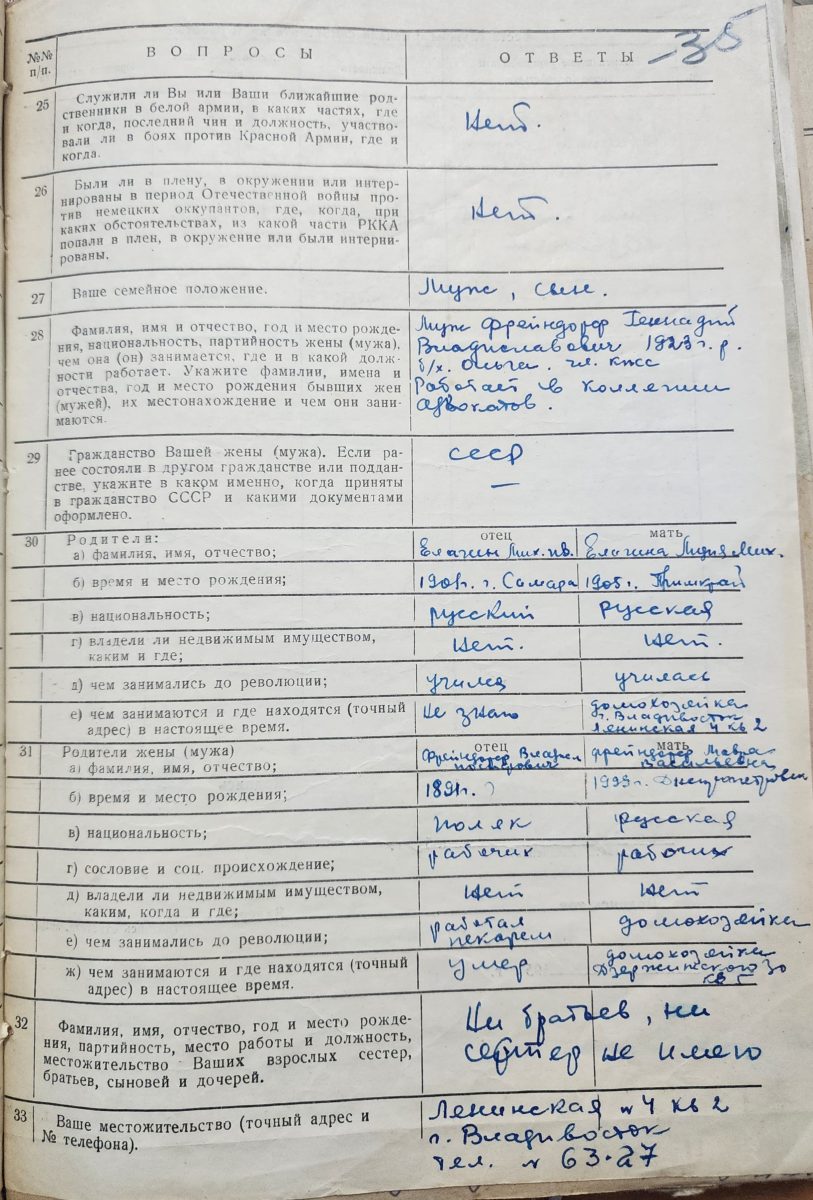 35
№№
п/п.
ВОПРОСЫ
ОТВЕТЫ
25
Служили ли Вы или Ваши ближайшие род-
ственники в белой армии, в каких частях, где
и когда, последний чин и должность, участво-
вали ли в боях против Красной Армии, где и
когда.
Нет.
26
Были ли в плену, в окружении или интер-
нированы в период Отечественной войны про-
тив немецких оккупантов, где, когда, при
каких обстоятельствах, из какой части РККА
попали в плен, в окружение или были интерни-
рованы.
Нет.
27
Ваше семейное положение.
Муж, сын.
28
Фамилия, имя и отчество, год и место рожде-
ния, национальность, партийность жены (мужа),
чем она (он) занимается, где и в какой долж-
ности работает. Укажите фамилии, имена и
отчества, год и место рождения бывших жен
(мужей), их местонахождение и чем они зани-
маются.
Муж Фрейндорф Геннадий
Владиславович 1923 г. р.
чл. КПСС
Работает в коллегии
адвокатов.
29
Гражданство Вашей жены (мужа). Если ра-
нее состояли в другом гражданстве или поддан-
стве, укажите в каком именно, когда приняты
в гражданство СССР и какими документами
оформлено.
СССР
—
30
Родители:
отец
мать
а) фамилия, имя, отчество;
Елагин Мих. Ив.
Елагина Лидия Мих.
б) время и место рождения;
г. Самара
1905 г. Примкрай
в) национальность;
русский
русская
г) владели ли недвижимым имуществом,
каким и где;
Нет.
Нет.
д) чем занимались до революции;
училась
е) чем занимаются и где находятся (точный
адрес) в настоящее время.
Не знаю
домохозяйка
г. Владивосток
Ленинская 4 кв 2
31
Родители жены (мужа)
отец
мать
а) фамилия, имя, отчество;
Фрейндорф
Фрейндорф
Васильевна
б) время и место рождения;
1891 г.
Днепропетровск
в) национальность;
поляк
русская
г) сословие и соц. происхождение;
рабочих
рабочих
д) владели ли недвижимым имуществом,
каким, когда и где;
Нет
Нет
е) чем занимались до революции;
работал
пекарем
домохозяйка
ж) чем занимаются и где находятся (точный
адрес) в настоящее время.
умер
домохозяйка
Дзержинского 30
32
Фамилия, имя, отчество, год и место рожде-
ния, партийность, место работы и должность,
местожительство Ваших взрослых сестер,
братьев, сыновей и дочерей.
Ни братьев, ни
сестер не имею
33
Ваше местожительство (точный адрес и
№ телефона).
Ленинская № 4 кв 2
г. Владивосток
тел. № 63-27